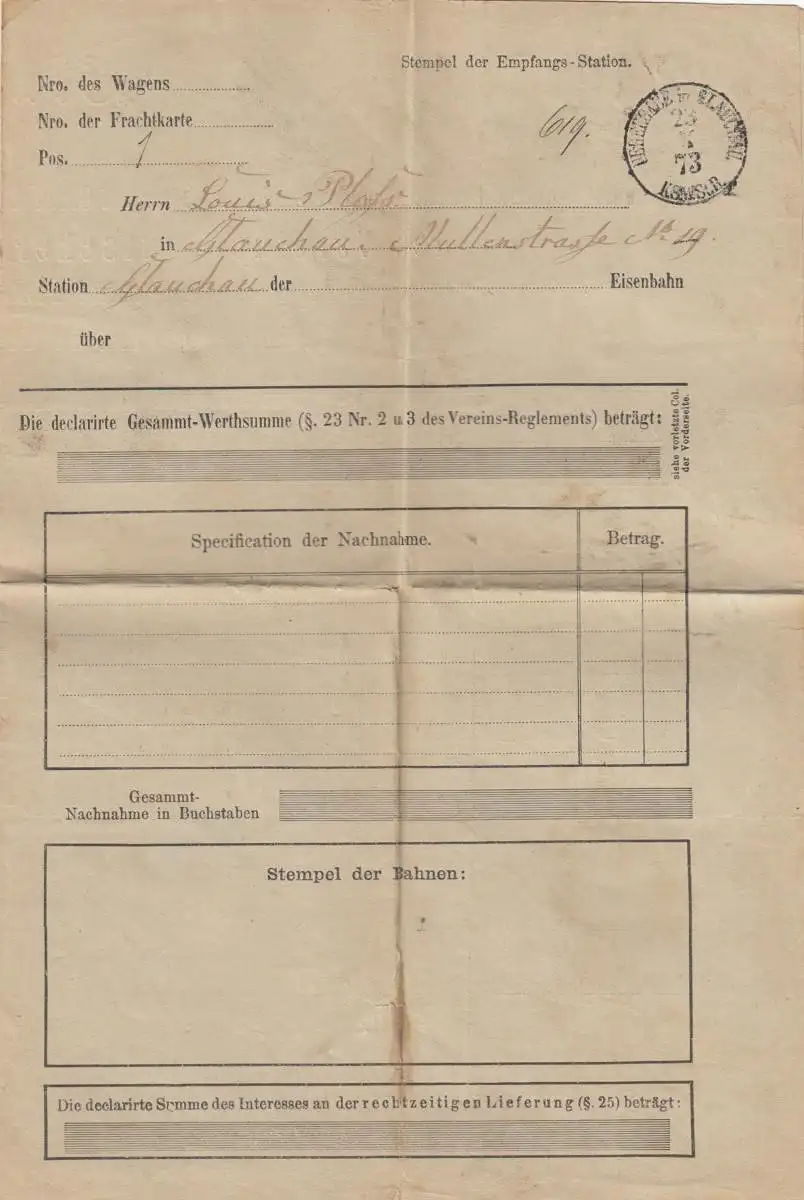 Stempel der Empfangs-Station.
Nro. des Wagens
Nro. der Frachtkarte
619.
Pos. 1
GLAUCHAU
23
73
Herrn Louis
in Glauchau, No 19.
Station Glauchau der Eisenbahn
über
Die declarirte Gesammt-Werthsumme (§. 23 Nr. 2 u 3 des Vereins-Reglements) beträgt:
siehe vorletzte Col.
der Vorderseite.
Specification der Nachnahme.
Betrag.
Gesammt-
Nachnahme in Buchstaben
Stempel der Bahnen:
Die declarirte Summe des Interesses an der rechtzeitigen Lieferung (§. 25) beträgt: